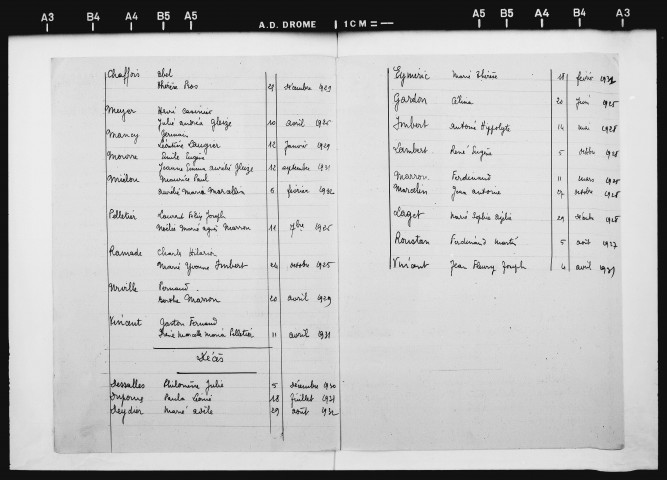 A3 B4 A4 B5 A5 A.D. DROME 1 CM = A5 B5 A4 B4 A3
Chaffois Abel
Thérèse Ros 29 décembre 1929
Meyer Hervé Casimir
Julie Gleize 10 avril 1925
Mancy Germain
Léontine Laugier 12 Janvier 1929
Emile Eugène
Jeanne aurélie Gleize 12 septembre 1931
Maurice Paul
aurélie Maria Marcellin 6 février 1932
Pelletier Laurent Félix Joseph
Noélie Marie Marron 11 7bre 1925
Ramade Charles Hilarion
Marie Yvonne Imbert 24 octobre 1925
Fernand
Marron 20 avril 1929
Vincent Gaston Fernand
Marcelle Maria Pelletier 11 avril 1931
Décès
Dessalles Philomène Julie 5 décembre 1930
Paula 18 juillet 1931
Leydier Marie adèle 29 août 1932
Eymeric Marie Thérèse 18 février
Gardon 20 1925
Imbert Antoine Hyppolyte 14 mai 1928
Lambert René Eugène 5 1928
Marron Ferdinand 11 mars
Marcelin Jean Antoine 27 octobre 1928
Laget Marie 29 1928
Roustan Ferdinand 5 août 1927
Vincent Jean Fleury Joseph 4 avril